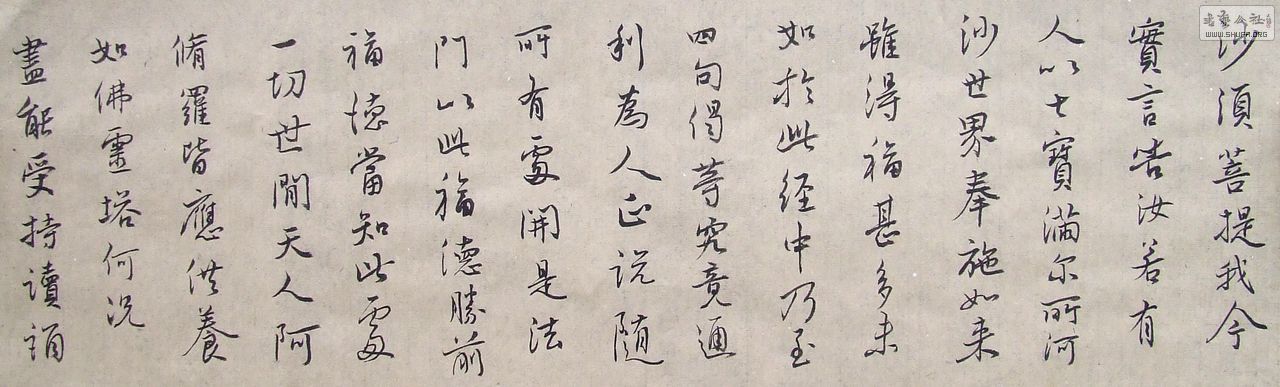 沙須菩提我今
實言告汝若有
人以七寶滿尔所河
沙世界奉施如来
雖得福甚多未
如於此経中乃至
四句偈等究竟通
利為人正説隨
所有處開是法
門以此福德勝前
福德當知此處
一切世間天人阿
脩羅皆應供養
如佛靈塔何況
盡能受持讀誦
WWW.SHUFA.ORG